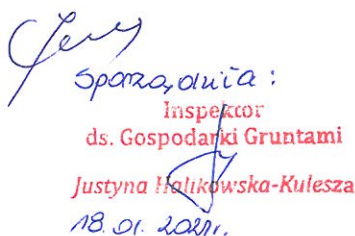 Sporządziła:
Inspektor
ds. Gospodarki Gruntami
Justyna Halikowska-Kulesza
18.01.2021r.